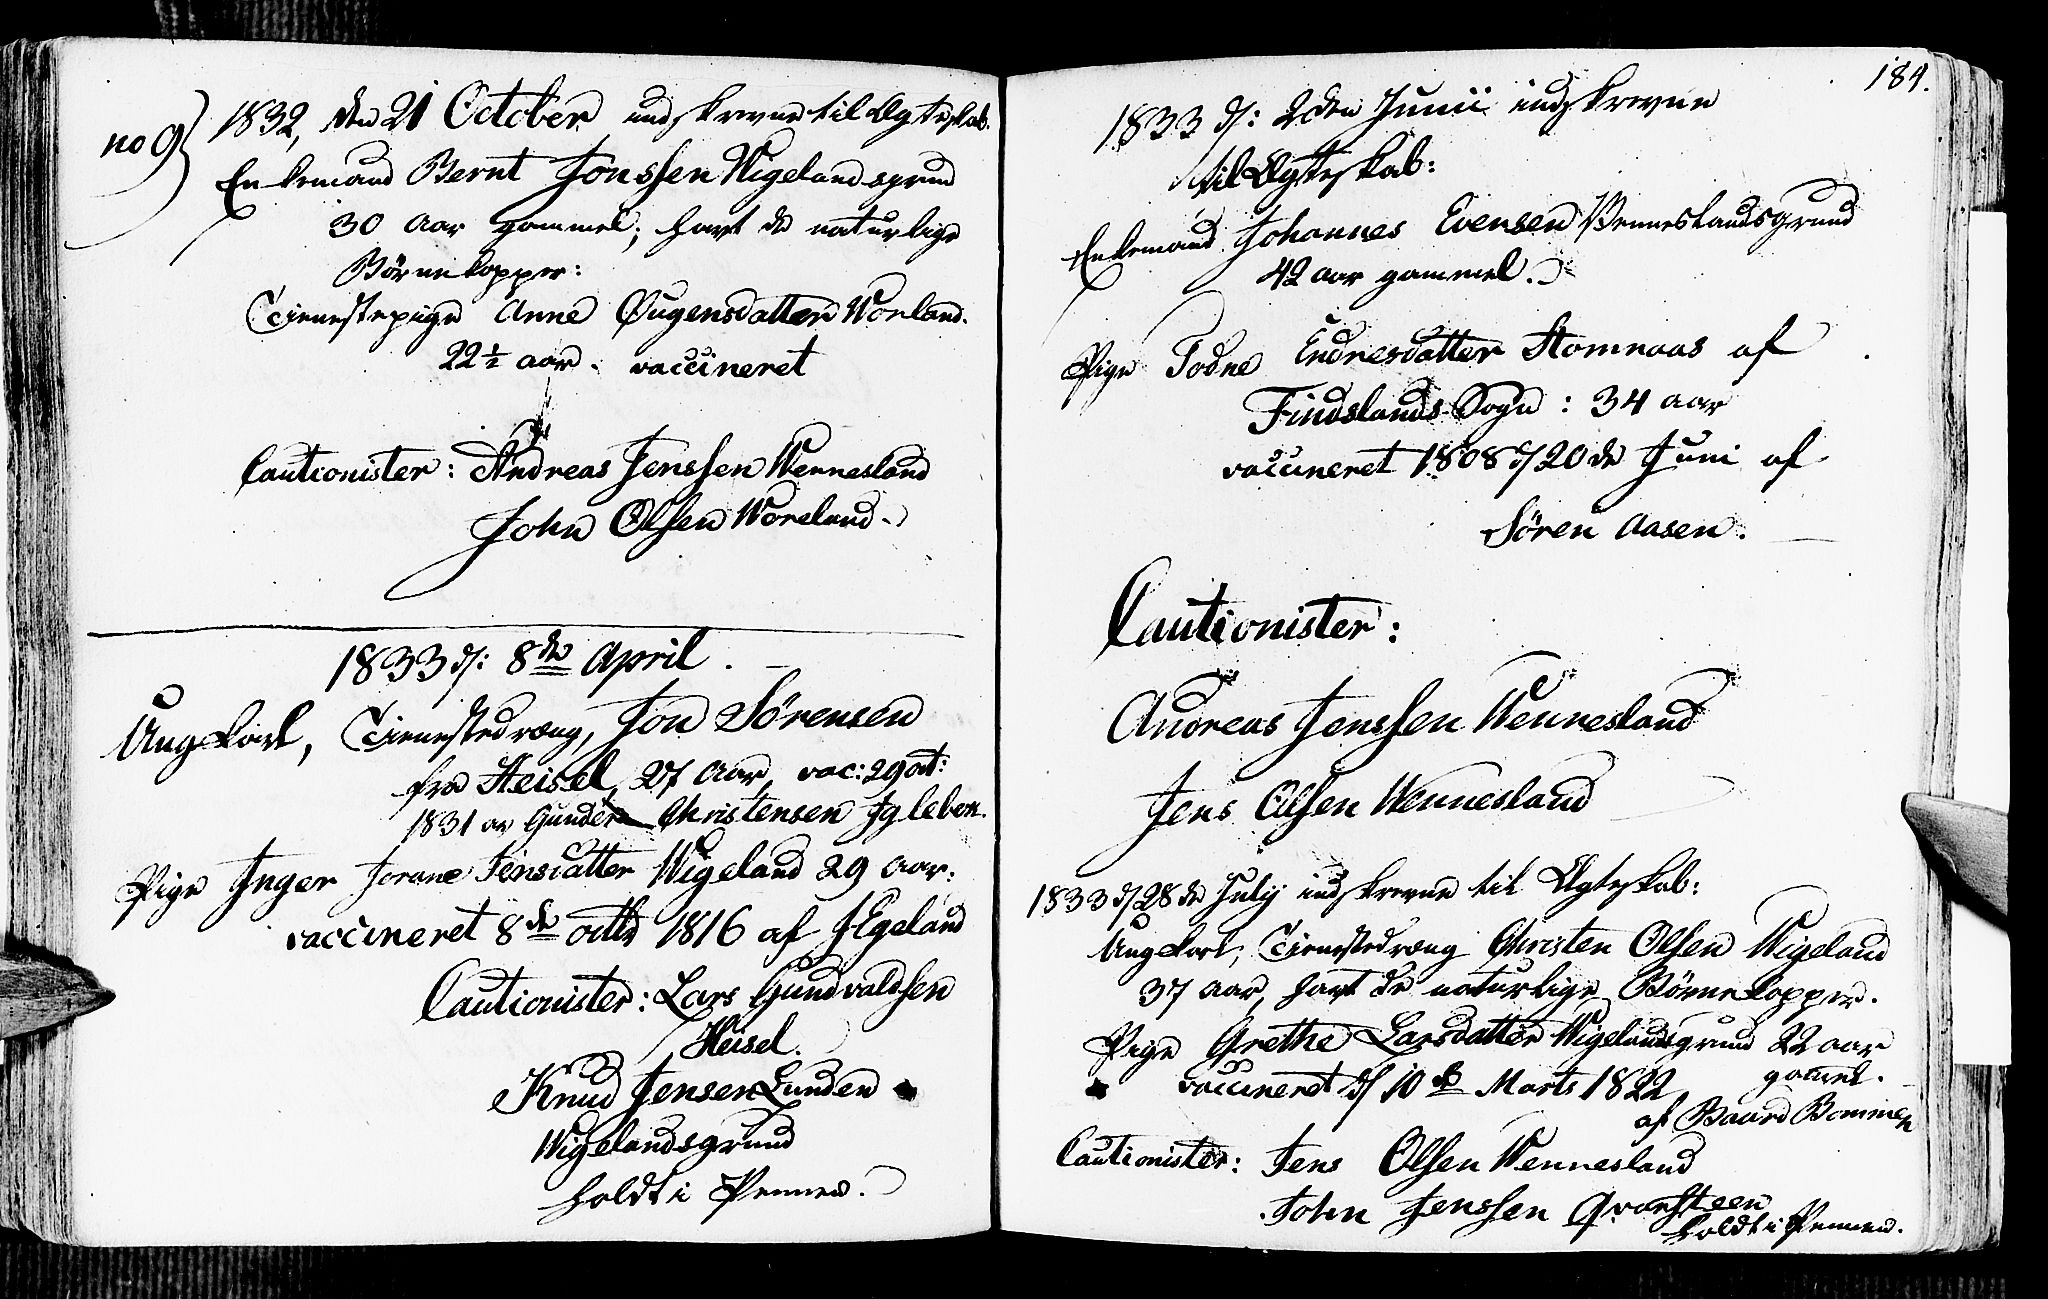 no 9
1832, den 21 October indskrevne til Ægteskab.
Enkemand Bernt Jonssen Wigelandsgrund
30 Aar gammel; havt de naturlige
Børnekopper:
Tienestepige Anne Øugensdatter Worland.
22½ aar. vaccineret
Cautionister: Andreas Jenssen Wennesland
John Olssen Woreland.
1833 d: 8de April.
Ungkarl, Tienestedreng, Jon Sörensen
fra Heisel, 27 Aar, vac: 29 oct:
1831 av Gunder Christensen Igleben.
Pige Inger Jorane Jensdatter Wigeland 29 Aar:
vaccineret 8de octbr 1816 af J Egeland
Cautionister: Lars Gundvaldsen
Heisel.
Knud Jensen Lunden
Wigelandsgrund
holdt i Pennen.
184.
1833 d: 2den Junii indskrevne
til Ægteskab:
Enkemand Johannes Evensen Wenneslandsgrund
42 aar gammel.
Pige Todne Endresdatter Stomnaas af
Findslands Sogn: 34 aar
vaccineret 1808 d/20de Juni af
Sören Aasen.
Cautionister:
Andreas Jenssen Wennesland
Jens Olssen Wennesland
1833 d/28de July indskrevne til Ægteskab:
Ungkarl, Tienestedreng Christen Olssen Wigeland
37 aar, havt de naturlige Börnekopper.
Pige Grethe Larsdatter Wigelandsgrund 22 aar
gamel.
vaccineret d/ 10de Marts 1822
af Baard Bommen
Cautionister: Jens Olssen Wennesland
John Jenssen Qvarsteen
holdt i Pennen.